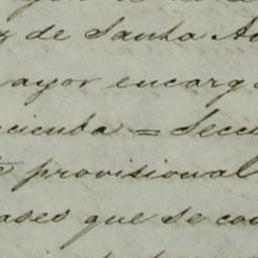 z de Santa A
ayor encarg
cienda = Secc
provisional
ases que se co